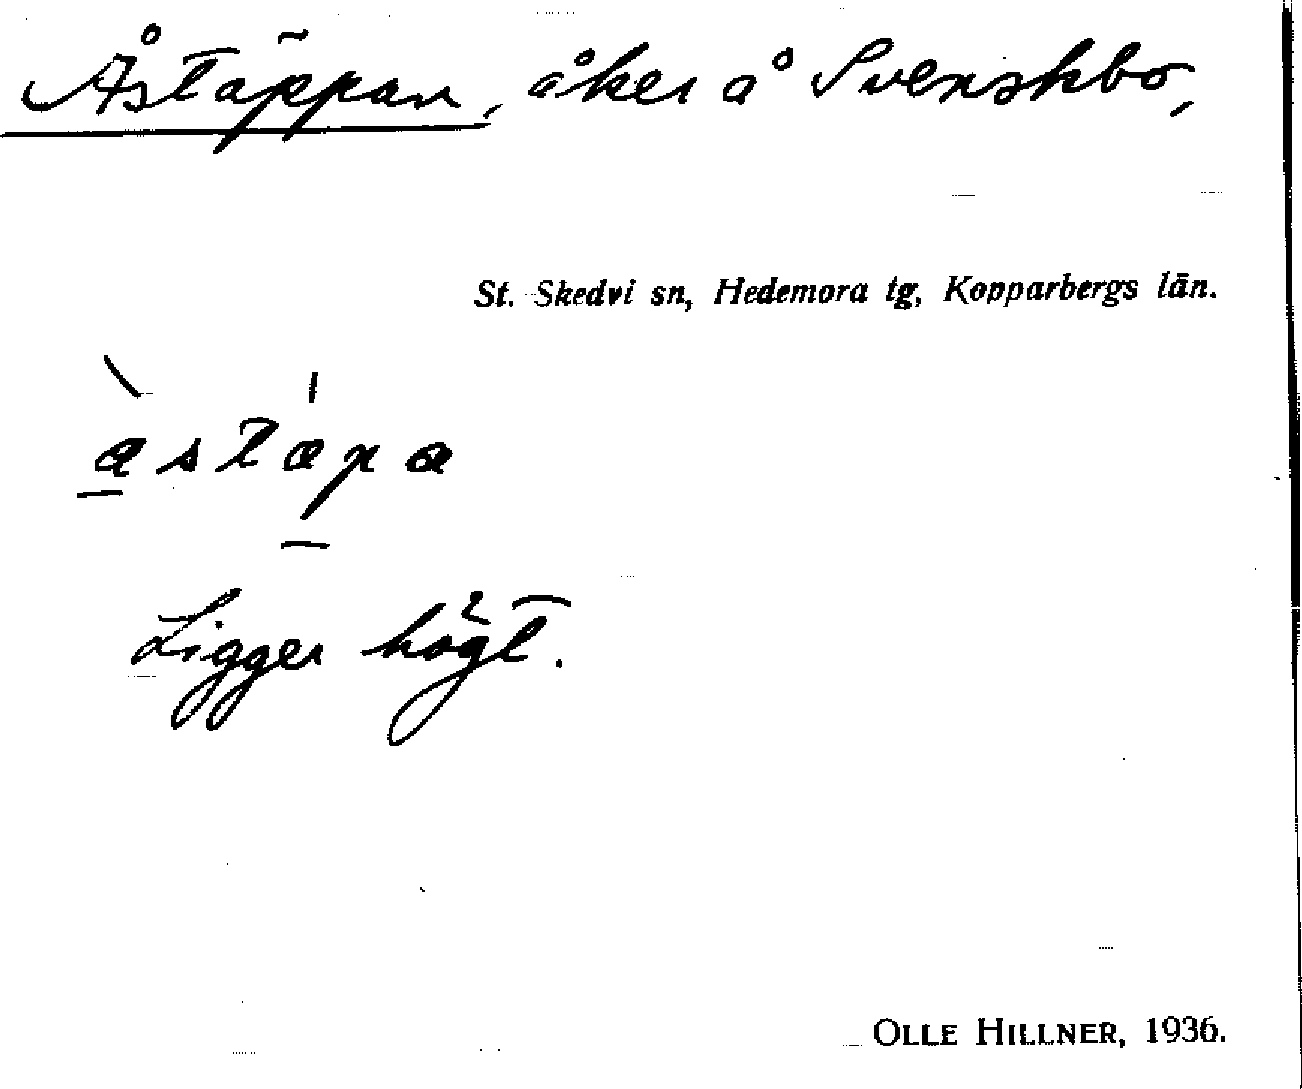 Åstäppan, åker å Svenskbo,
St. Skedvi sn, Hedemora tg, Kopparbergs län.
åstäpa
Ligger högt.
OLLE HILLNER, 1936.